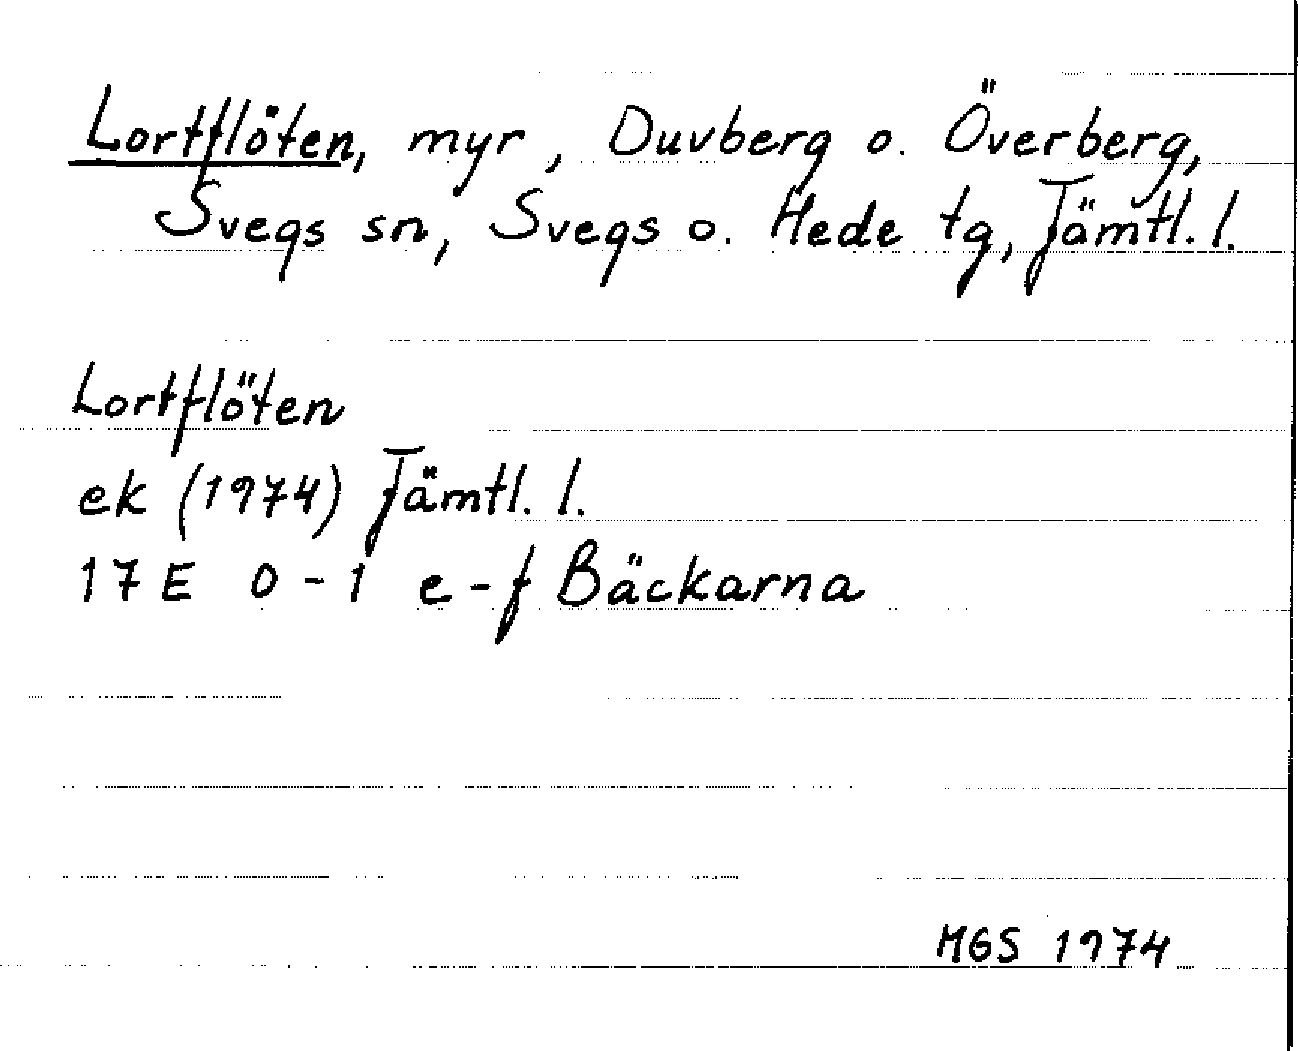 Lortflöten, myr, Duvberg o. Överberg,
Svegs sn, Svegs o. Hede tg, Jämtl. l.
Lortflöten
ek (1974) Jämtl. l.
17E 0-1 e-f Bäckarna
MGS 1974